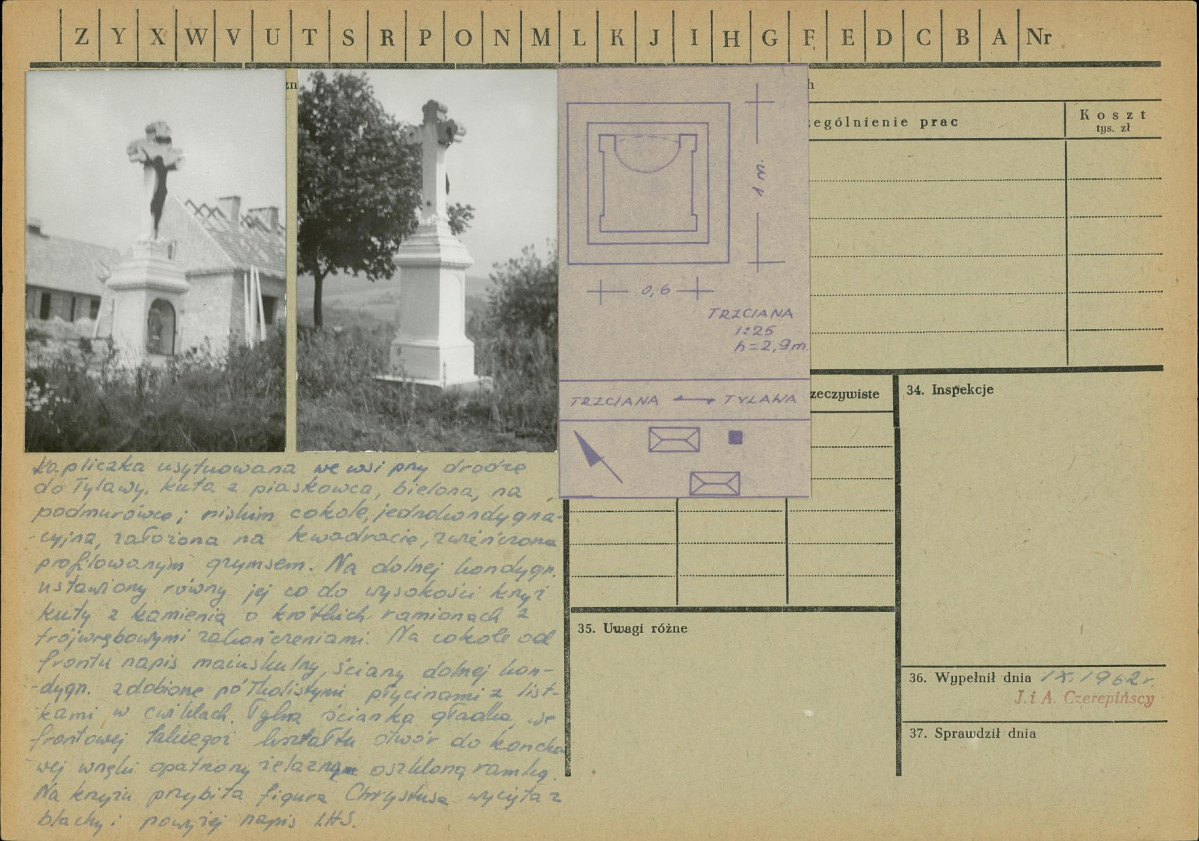 Z Y X W V U T S R P O N M L K J I H G F E D C B A Nr
zn
h
zególnienie prac
Koszt
tys. zł
0,6
TRZCIANA
1:25
h=2,9m
TRZCIANA TYLAWA
zeczywiste
34. Inspekcje
Kapliczka usytuowana we wsi przy drodze
do Tylawy, kuta z piaskowca, bielona, na
podmurówce i niskim cokole, jednokondygna-
-cyjna, założona na kwadracie, zwieńczona
profilowanym gzymsem. Na dolnej kondygn.
ustawiony równy jej co do wysokości krzyż
kuty z kamienia o krótkich ramionach z
trójwrębowymi zakończeniami. Na cokole od
frontu napis majuskulny, ściany dolnej kon-
-dygn. zdobione półkolistymi płycinami z list-
kami w cwiklach. Tylna ścianka gładka, we
frontowej takiegoż kształtu otwór do koncho
wej wnęki opatrzony żelazną oszkloną ramką.
Na krzyżu przybita figura Chrystusa wycięta z
blachy i powyżej napis IHS.
35. Uwagi różne
36. Wypełnił dnia IX.1962r.
J. i A. Czerepińscy
37. Sprawdził dnia